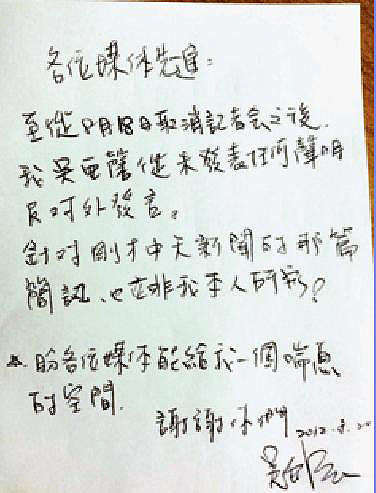 各位媒体先進：
至從8月18日取消記者会之後，
我吳亞馨從未發表任何聲明
及对外發言。
針对剛才中天新聞的那篇
簡訊、也並非我本人所寫！
盼各位媒体能給我一個喘息
的空間.
謝謝你們 2012.8.20